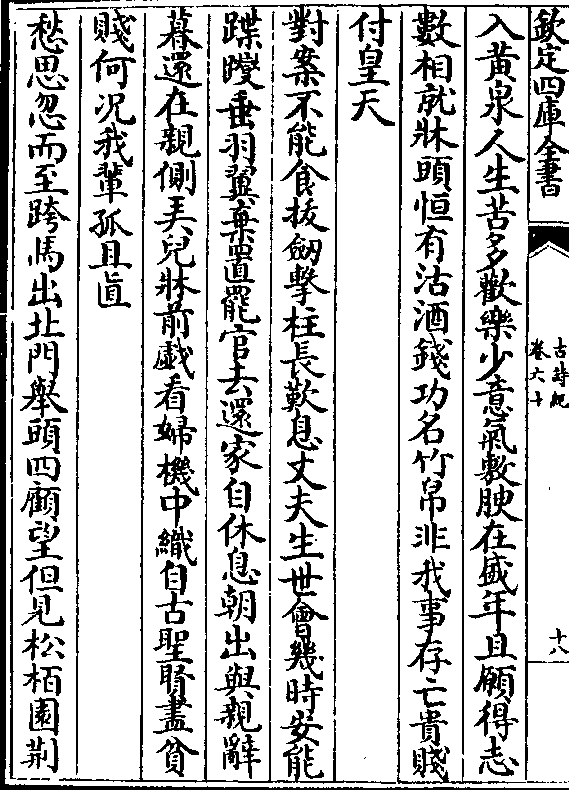 欽定四庫全書
古詩紀
卷六十
十八
入黄泉人生苦多歡樂少意氣敷腴在盛年且願得志
數相就牀頭恒有沽酒錢功名竹帛非我事存亡貴賤
付皇天
對案不能食拔劒擊柱長歎息丈夫生世會幾時安能
蹀躞垂羽翼棄置罷官去還家自休息朝出與親辭
暮還在親側弄兒牀前戲看婦機中織自古聖賢盡貧
賤何况我輩孤且直
愁思忽而至跨馬出北門舉頭四顧望但見松栢園荆